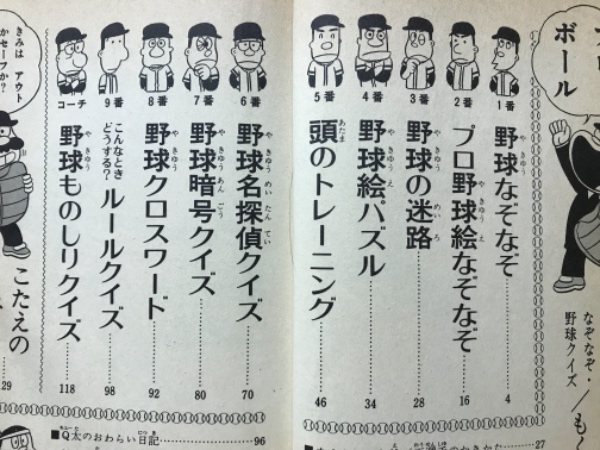 プロ
ボール
なぞなぞ・
野球クイズ
もく
1番
野球なぞなぞ
4
2番
プロ野球絵なぞなぞ
16
3番
野球の迷路
28
4番
野球絵パズル
34
5番
頭のトレーニング
46
27
6番
野球名探偵クイズ
70
7番
野球暗号クイズ
80
8番
野球クロスワード
92
9番
こんなとき
どうする?
ルールクイズ
98
コーチ
野球ものしりクイズ
118
■Q太のおわらい日記
96
きみは アウト
かセーフか?
こたえの
29